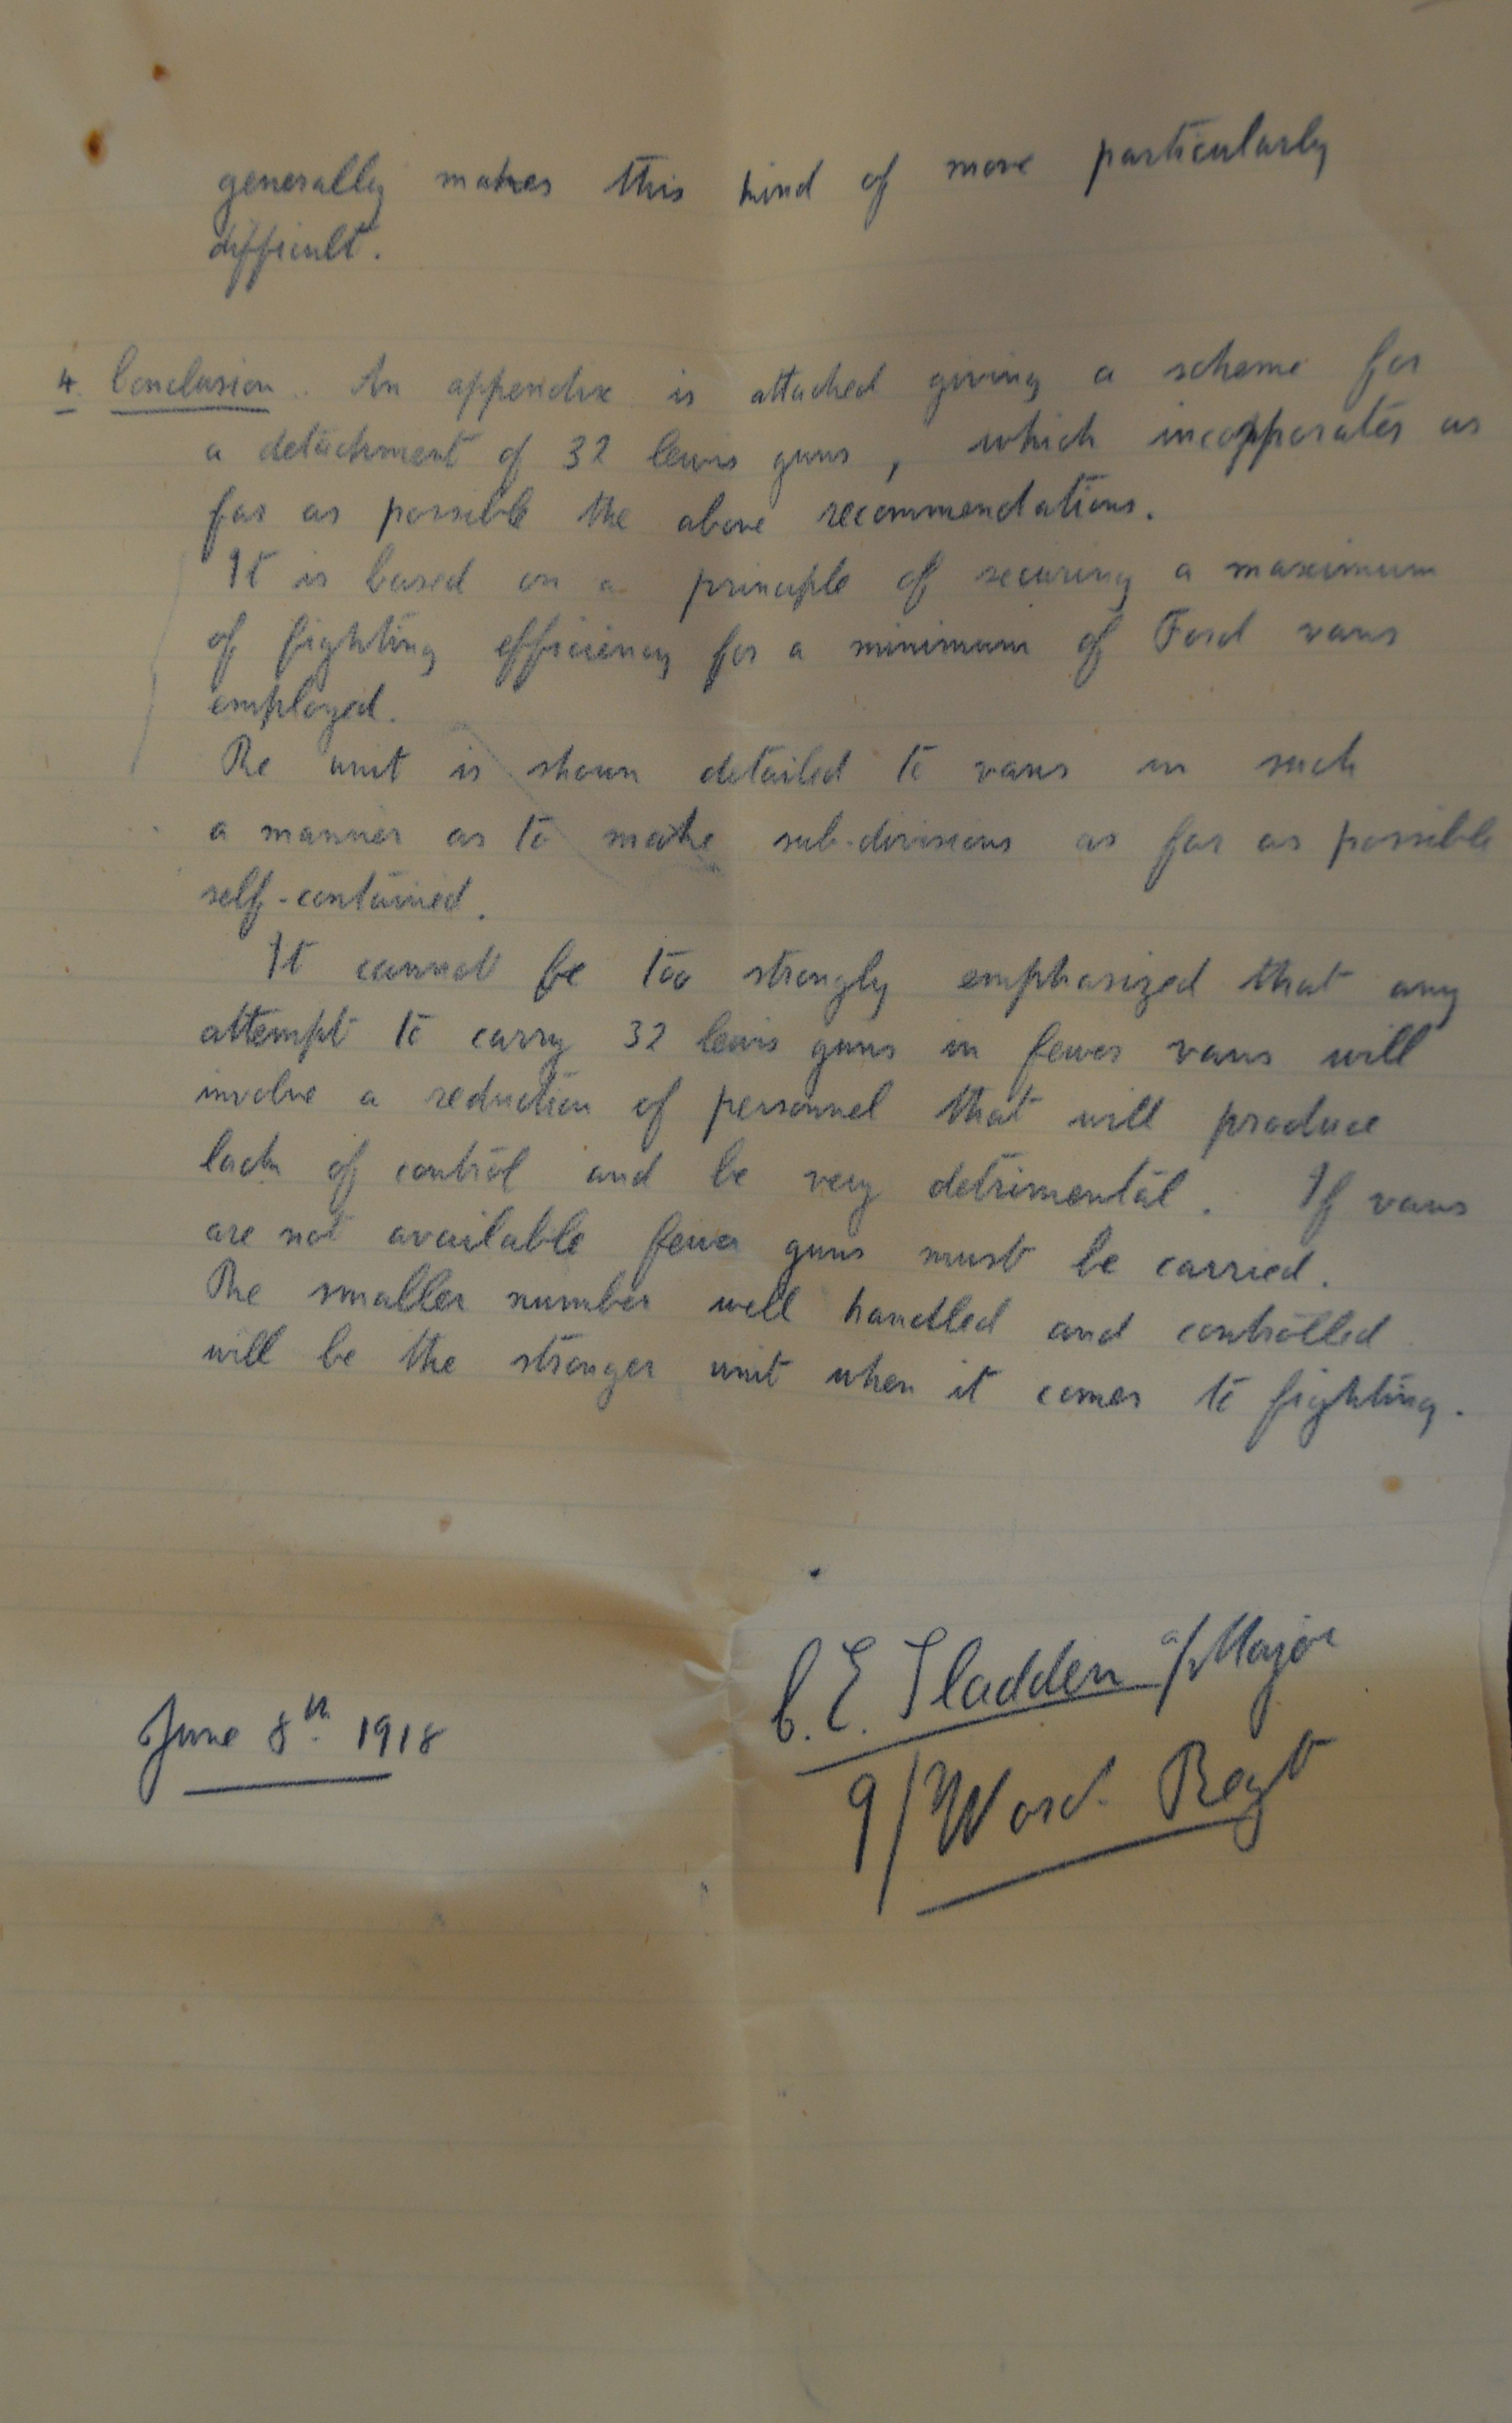 generally makes this kind of move particularly
difficult.
4. Conclusion. An appendix is attached giving a scheme for
a detachment of 32 lewis guns, which incorporates as
far as possible the above recommendations.
It is based on a principle of securing a maximum
of fighting efficiency for a minimum of Ford vans
employed.
The unit is shown detailed to vans in such
a manner as to make sub-divisions as far as possible
self-contained.
It cannot be too strongly emphasized that any
attempt to carry 32 lewis guns in fewer vans will
involve a reduction of personnel that will produce
lack of control and be very detrimental. If vans
are not available fewer guns must be carried.
The smaller number well handled and controlled
will be the stronger unit when it comes to fighting.
C. E. Sladden a/Major
June 8th. 1918
9/Worc. Regt